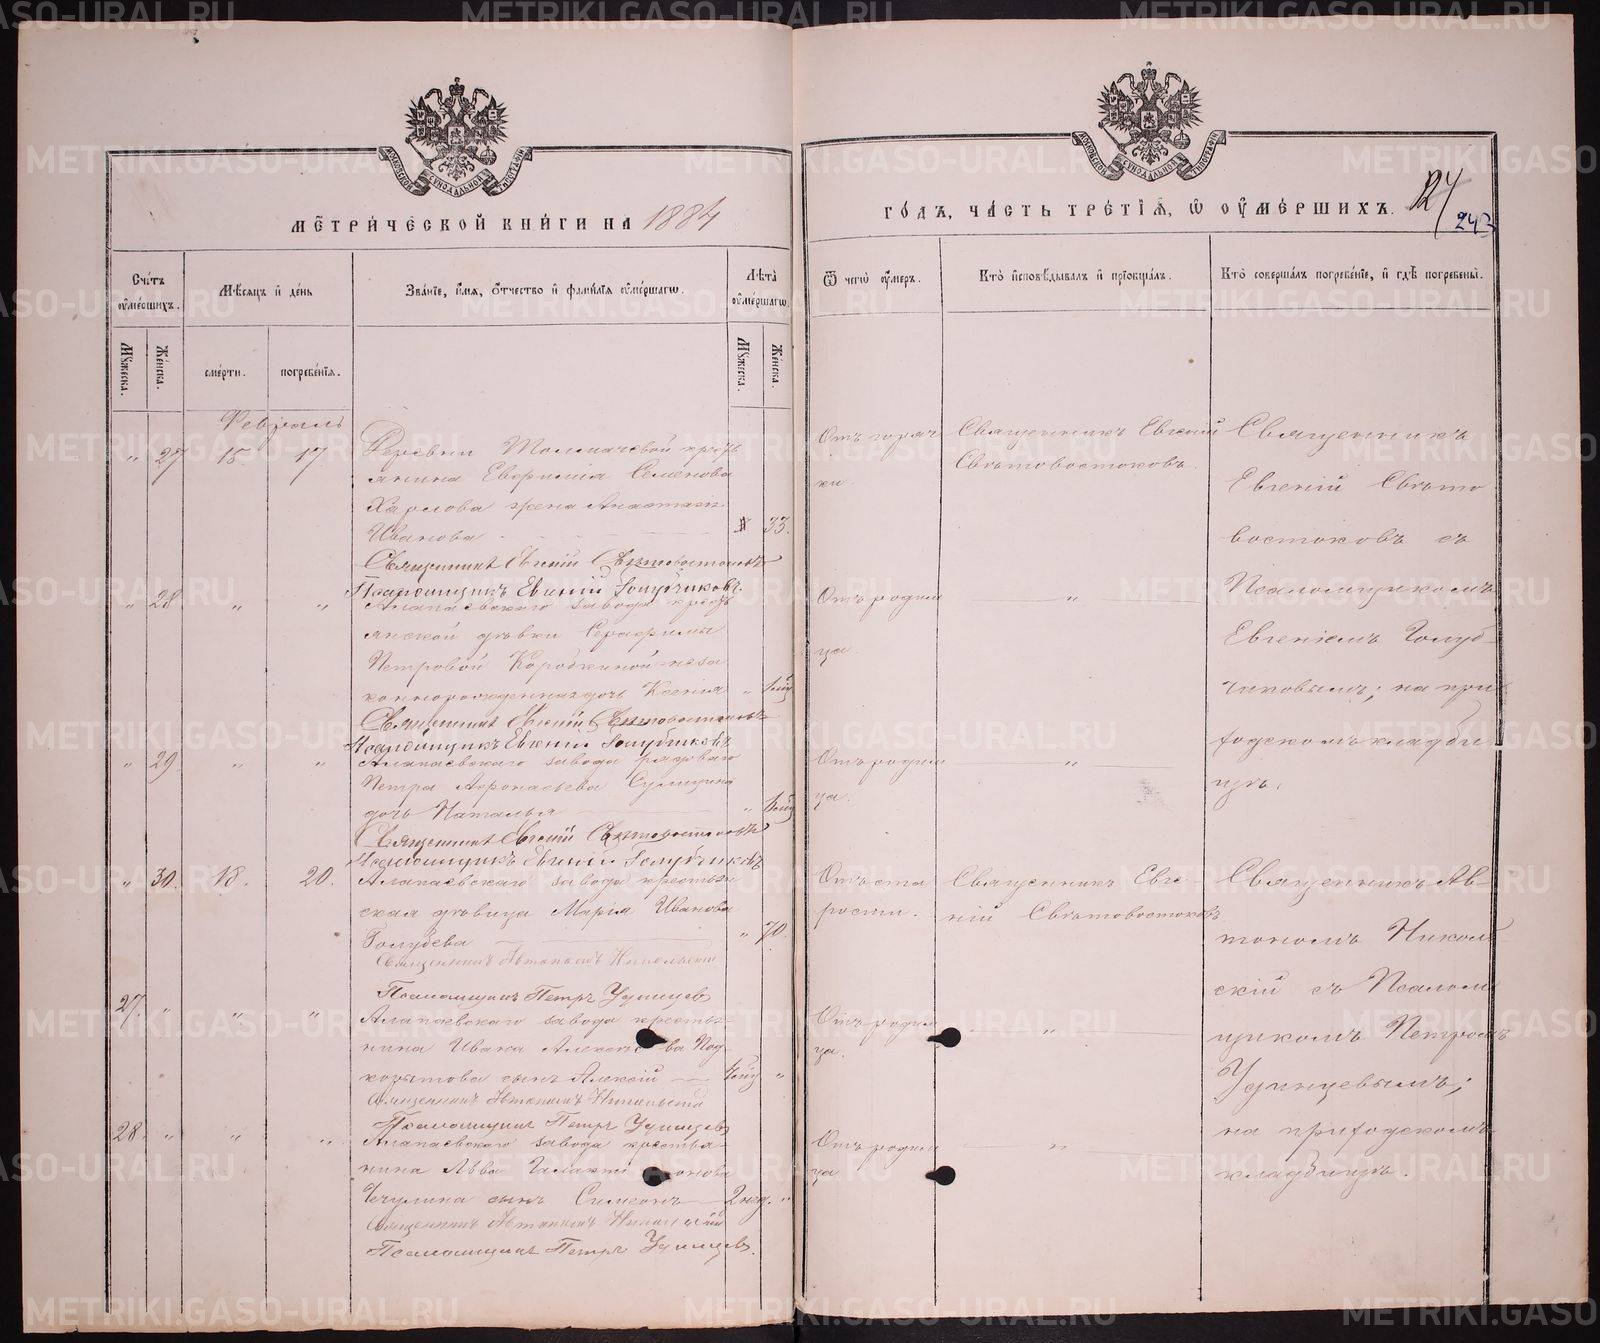 МЕТРИЧЕСКОЙ КНИГИ НА 1884
ГОДЪ, ЧАСТЬ ТРЕТІЯ, Ѿ ОУМЕРШИХЪ.
24
243
Счетъ оумершихъ.
Мѣсяцъ и день
Званіе, имя, отчество и фамилія оумершагѡ.
Лѣта оумершагѡ.
Мужеска.
Женска.
смерти.
погребенія.
Мужеска.
Женска.
Ѿ чегѡ оумеръ.
Кто исповѣдывалъ и пріобщалъ.
Кто совершалъ погребеніе, и гдѣ погребены.
Февраль
" 27 15 17
Деревни Толмачевой кресть
янина Евфимія Семенова
Харлова жена Анастасія
Иванова 33.
Священникъ Евгеній Свѣтовостоковъ
Псаломщикъ Евгеній Голубчиковъ
Отъ горяч
ки.
Священникъ Евгеній
Свѣтовостоковъ.
Священникъ
Евгеній Свѣто
востоковъ съ
Псаломщикомъ
Евгеніемъ Голуб-
чиковымъ; на при
ходскомъ кладби
щѣ.
" 28 " "
Алапаевскаго завода кресть
янской дѣвки Серафимы
Петровой Коробкиной неза
коннорожденная дочь Ксенія "
Священникъ Евгеній Свѣтовостоковъ
Псаломщикъ Евгеній Голубчиковъ
Отъ родим
ца.
"
" 29 " "
Алапаевскаго завода рядоваго
Петра Афонасьева
дочь Наталья "
Священникъ Евгеній Свѣтовостоковъ
Псаломщикъ Евгеній Голубчиковъ
Отъ родим
ца.
"
" 30. 18. 20.
Алапаевскаго завода крестьян
ская дѣвица Марія Иванова
Голубева " 70.
Священникъ Автономъ Никольскій
Псаломщикъ Петръ Удинцевъ
Отъ ста
рости.
Священникъ Евге
ній Свѣтовостоковъ
Священникъ Ав-
тономъ Николь
скій съ Псалом
щикомъ Петромъ
Удинцевымъ;
на приходскомъ
кладбищѣ.
27. " " "
Алапаевскаго завода крестья-
нина Ивана Алексѣева Под-
корытова сынъ Алексій "
Священникъ Автономъ Никольскій
Псаломщикъ Петръ Удинцевъ
Отъ родим
ца.
"
28. " " "
Алапаевскаго завода крестья-
нина Льва Галактіонова
Чечулина сынъ Симеонъ 2 нед. "
Священникъ Автономъ Никольскій
Псаломщикъ Петръ Удинцевъ.
Отъ родим
ца.
"
METRIKI.GASO-URAL.RU